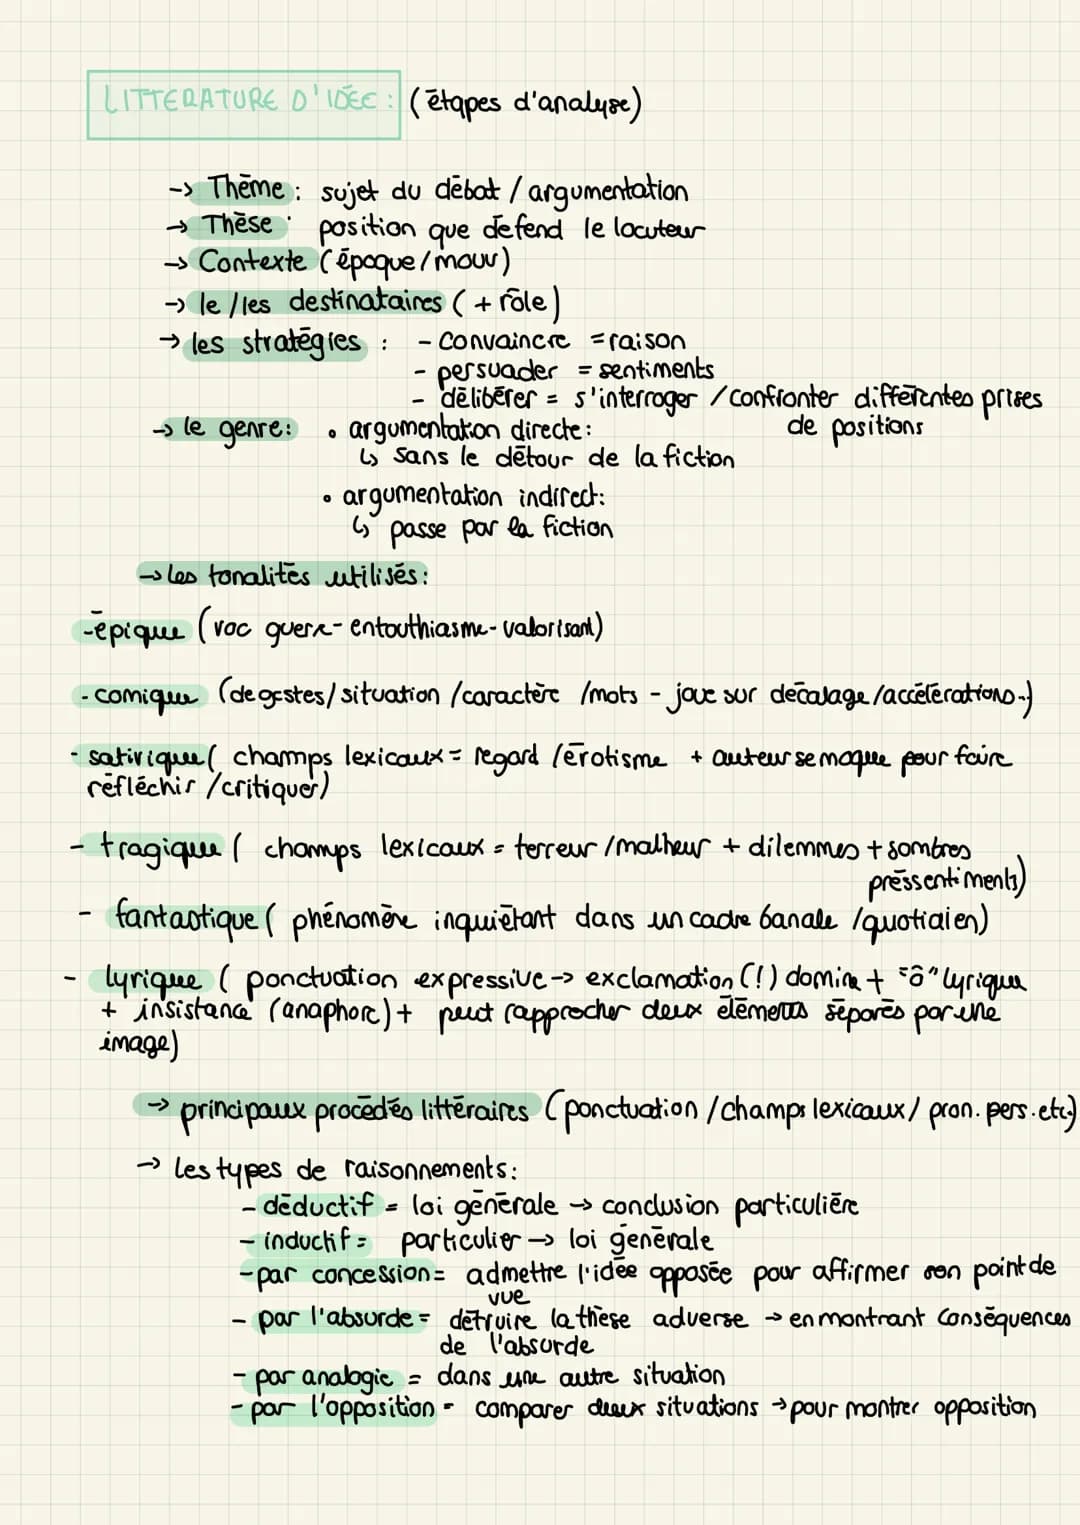 LITTERATURE D'IDÉE : (étapes d'analyse)
-> Thème : sujet du débat / argumentation
-> Thèse : position que défend le locuteur
-> Contexte (époque/mouv)
-> le /les destinataires ( + rôle)
-> les stratégies : - convaincre = raison
- persuader = sentiments
- délibérer = s'interroger /confronter différentes prises
de positions
-> le genre: • argumentation directe:
↳ sans le détour de la fiction
• argumentation indirect:
↳ passe par la fiction
-> les tonalités utilisés:
-épique (voc guerre- entouthiasme- valorisant)
- comique (de gestes/ situation /caractère /mots - joue sur décalage /accélérations-)
- satirique ( champs lexicaux = regard /érotisme + auteur se moque pour faire
réfléchir /critiquer)
- tragique ( champs lexicaux = terreur /malheur + dilemmes + sombres
préssentiments)
- fantastique ( phénomère inquiétant dans un cadre banale /quotidien)
- lyrique ( ponctuation expressive -> exclamation (!) domine + "ô" lyrique
+ insistance (anaphore) + peut rapprocher deux éléments séparés par une
image)
-> principaux procédés littéraires (ponctuation /champs lexicaux/ pron. pers. etc.)
-> les types de raisonnements:
- déductif = loi générale -> conclusion particulière
- inductif = particulier -> loi générale
- par concession = admettre l'idée opposée pour affirmer son point de
vue
- par l'absurde = détruire la thèse adverse -> en montrant conséquences
de l'absurde
- par analogie = dans une autre situation
- par l'opposition - comparer deux situations -> pour montrer opposition